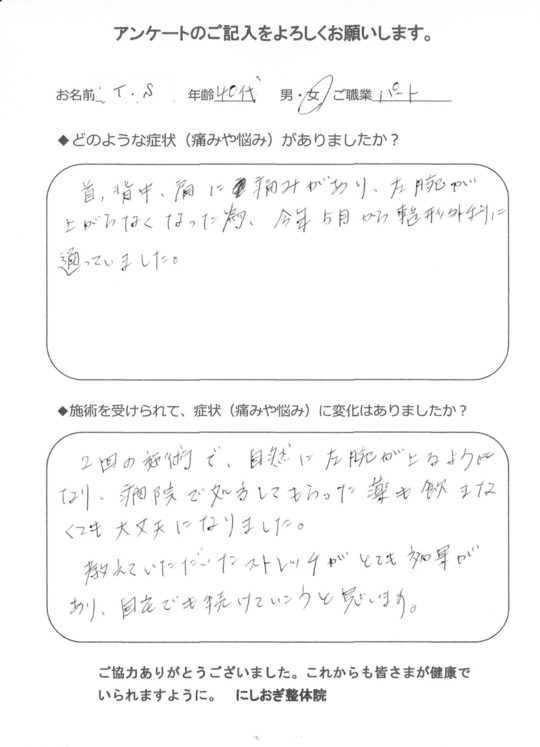 アンケートのご記入をよろしくお願いします。
お名前 T. S 年齢 40代 男・女 ご職業 パート
◆どのような症状（痛みや悩み）がありましたか？
首、背中、肩に痛みがあり、左腕が
上がらなくなった為、今年5月から整形外科に
通っていました。
◆施術を受けられて、症状（痛みや悩み）に変化はありましたか？
2回の施術で、自然に左腕が上るように
なり、病院で処方してもらった薬も飲まな
くても大丈夫になりました。
教えていただいたストレッチがとても効果が
あり、自宅でも続けていこうと思います。
ご協力ありがとうございました。これからも皆さまが健康で
いられますように。 にしおぎ整体院